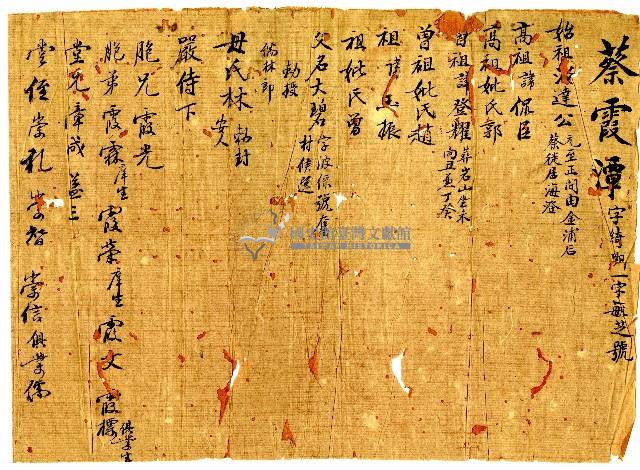 蔡霞潭字綺卿一字毓芝號
始祖 達公元至正間由金浦后蔡徙居海澄
高祖諱侃臣
高祖妣氏郭
曾祖諱登耀葬岩山坐未向丑兼丁癸
曾祖妣氏趙
祖諱玉振
祖妣氏曾
父名大碧字波僚號 村候選
勅授
儒林郎
母氏林勅封安人
嚴侍下
胞兄霞光
胞弟霞霖庠生霞榮庠生霞文霞標俱業儒
堂兄章成 益三
堂侄崇礼 崇智 崇信俱業儒
國史館臺灣文獻館
TAIWAN HISTORICA